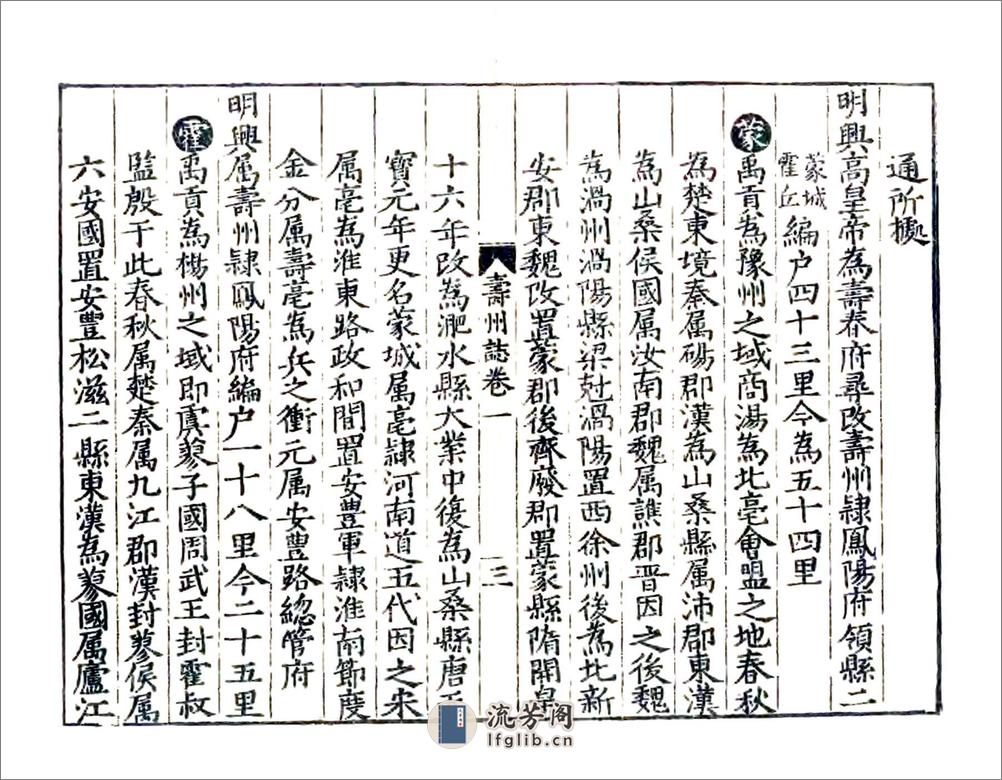 通所據
明興高皇帝為壽春府尋改壽州隸鳳陽府領縣二
蒙城
霍丘
編户四十三里今為五十四里
蒙禹貢為豫州之域商湯為北亳會盟之地春秋
為楚東境秦属碭郡漢為山桑縣属沛郡東漢
為山桑侯國属汝南郡魏属譙郡晋因之後魏
為渦州渦陽縣梁尅渦陽置西徐州後為北新
安郡東魏改置蒙郡後齊廢郡置蒙縣隋開皇
壽州誌卷一
三
十六年改為淝水縣大業中復為山桑縣唐天
寶元年更名蒙城属亳隸河南道五代因之宋
属亳為淮東路政和間置安豊軍隸淮南節度
金分属壽亳為兵之衝元属安豊路總管府
明興属壽州隸鳳陽府編户一十八里今二十五里
霍禹貢為楊州之域即虞蓼子國周武王封霍叔
監殷于此春秋属楚秦属九江郡漢封蓼侯属
六安國置安豊松滋二縣東漢為蓼國属廬江
流芳阁
lfglib.cn